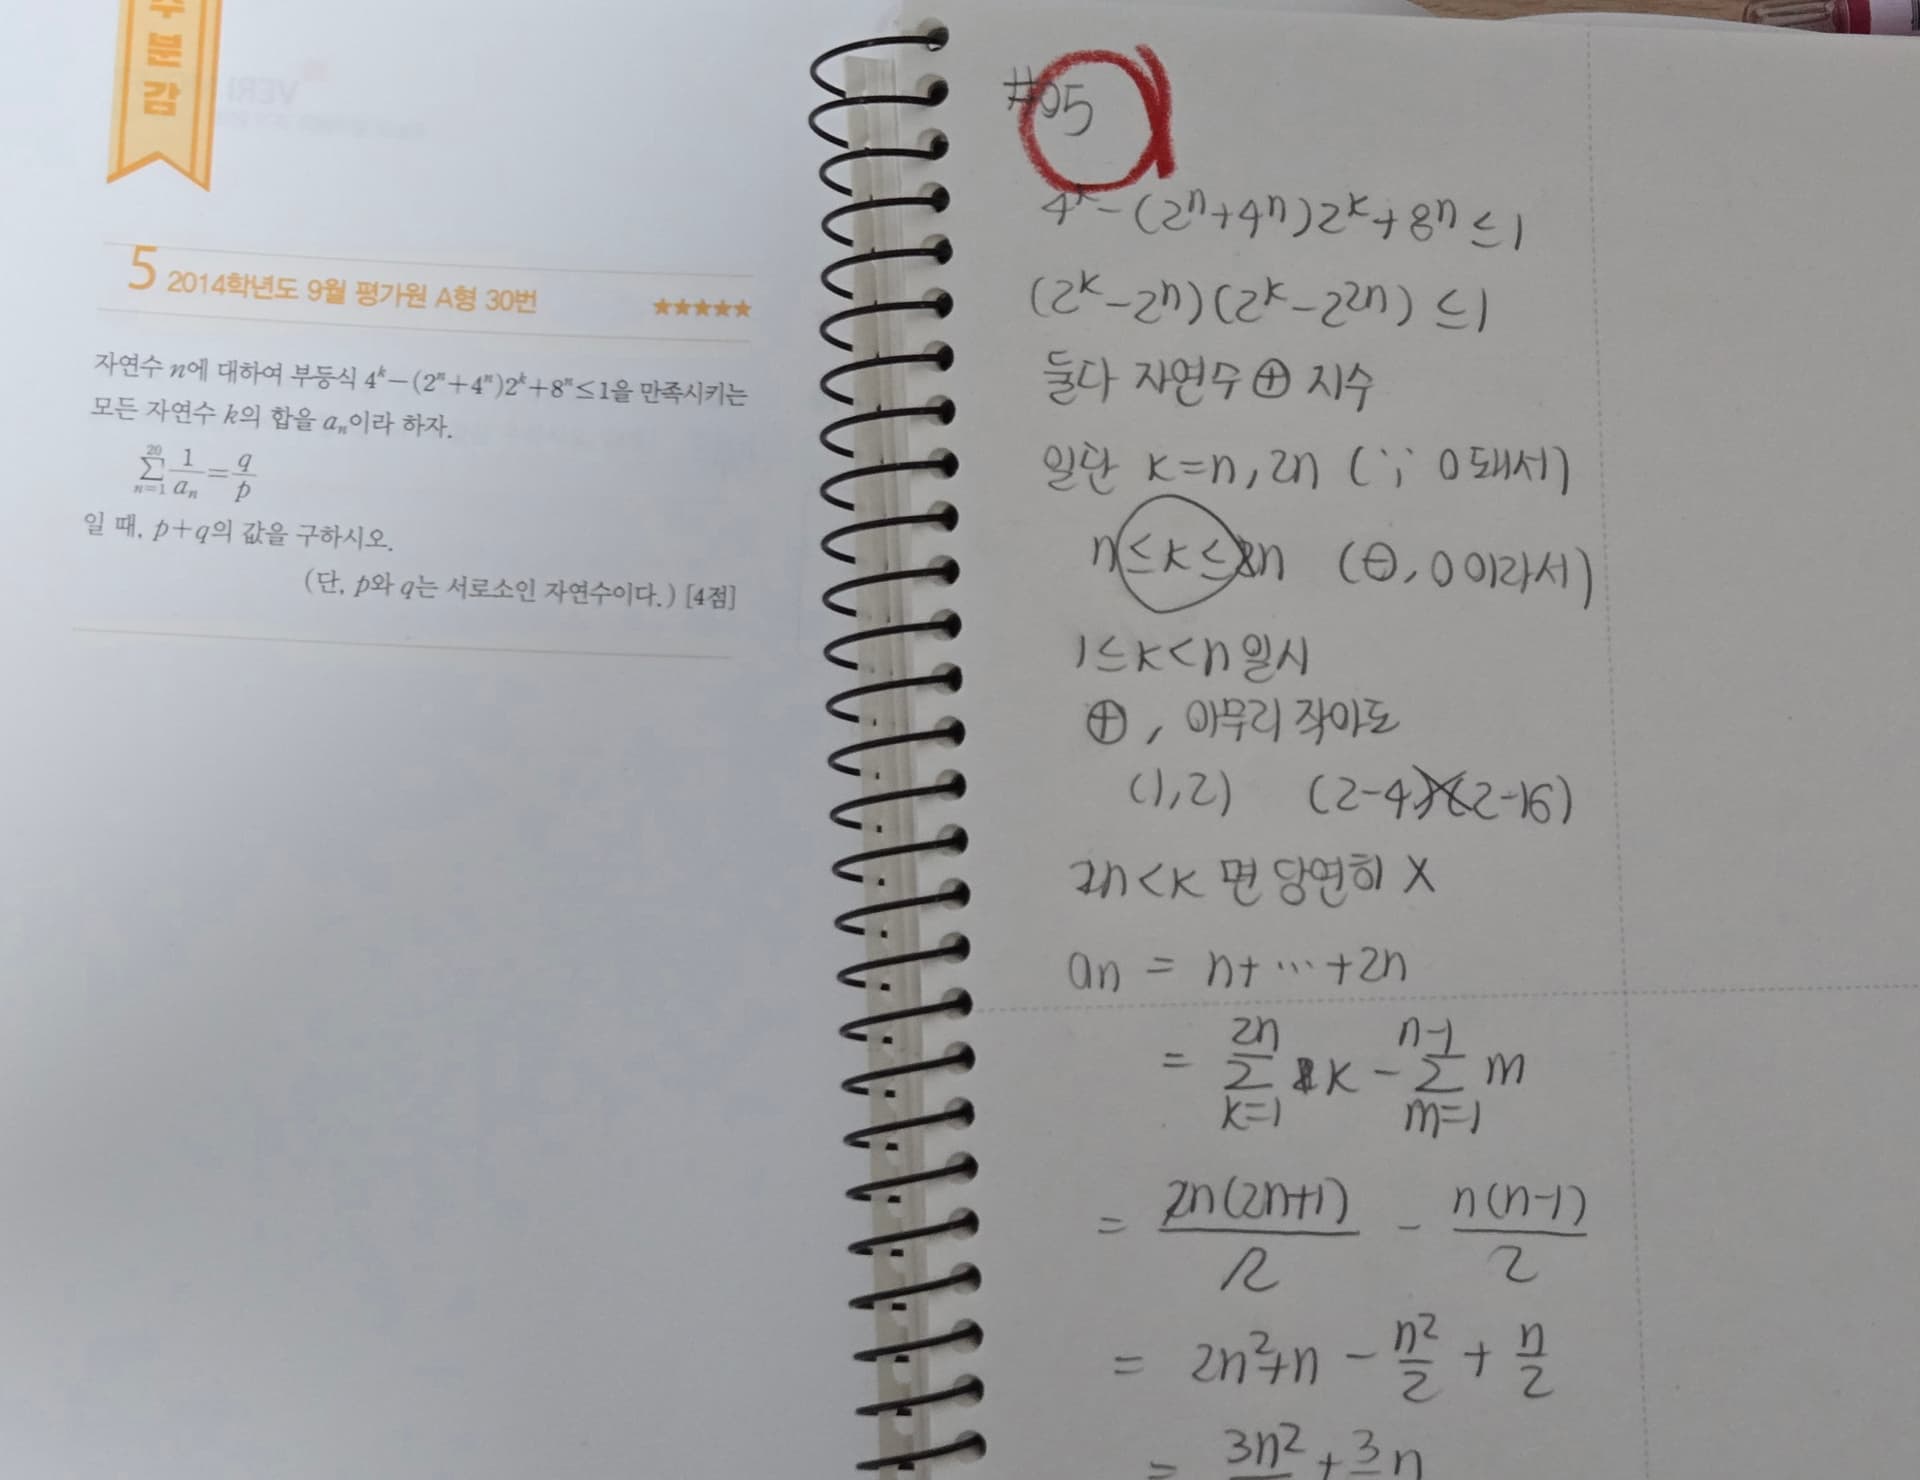 수
분
감
5 2014학년도 9월 평가원 A형 30번 ★★★★★
자연수 n에 대하여 부등식 4^k-(2^n+4^n)2^k+8^n≤1을 만족시키는
모든 자연수 k의 합을 a_n이라 하자.
\sum_{n=1}^{20} \frac{1}{a_n} = \frac{q}{p}
일 때, p+q의 값을 구하시오.
(단, p와 q는 서로소인 자연수이다.) [4점]
#05
4^k-(2^n+4^n)2^k+8^n≤1
(2^k-2^n)(2^k-2^{2n})≤1
둘다 자연수 ⊕ 지수
일단 k=n, 2n (∵ 0돼서)
n≤k≤2n (⊖, 0이라서)
1≤k<n일시
⊕, 아무리 작아도
(1,2) (2-4)(2-16)
2n<k 면 당연히 X
an = n+⋯+2n
= \sum_{k=1}^{2n} k - \sum_{m=1}^{n-1} m
= \frac{2n(2n+1)}{2} - \frac{n(n-1)}{2}
= 2n^2+n - \frac{n^2}{2} + \frac{n}{2}
= 3n^2 + 3n